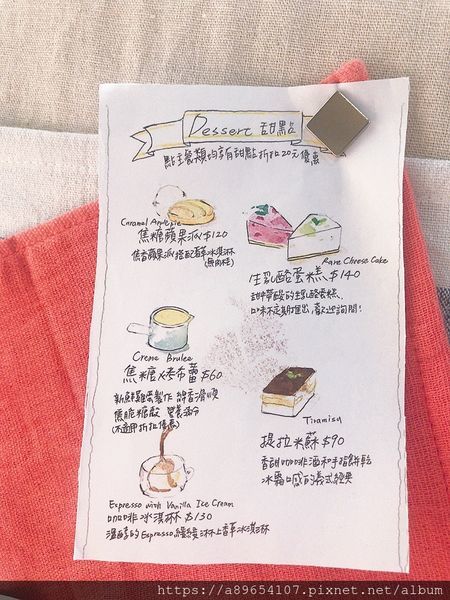 Dessert 甜點
點主餐類均享有甜點折扣20元優惠
Caramel Apple pie
焦糖蘋果派 $120
焦香蘋果派搭配香草冰淇淋
(無肉桂)
Rare Cheese Cake
生乳酪蛋糕 $140
甜中帶酸的生乳酪蛋糕、
口味不定期推出,歡迎詢問!
Creme Brulee
焦糖烤布蕾 $60
新鮮雞蛋製作 綿香滑順
焦脆糖殼
(不適用折扣優惠)
Tiramisu
提拉米蘇 $90
香甜咖啡酒和手指餅乾
冰霜口感的義式經典
Espresso with Vanilla Ice Cream
咖啡冰淇淋 $130
溫醇的Espresso緩緩淋上香草冰淇淋
https://a89654107.pixnet.net/album